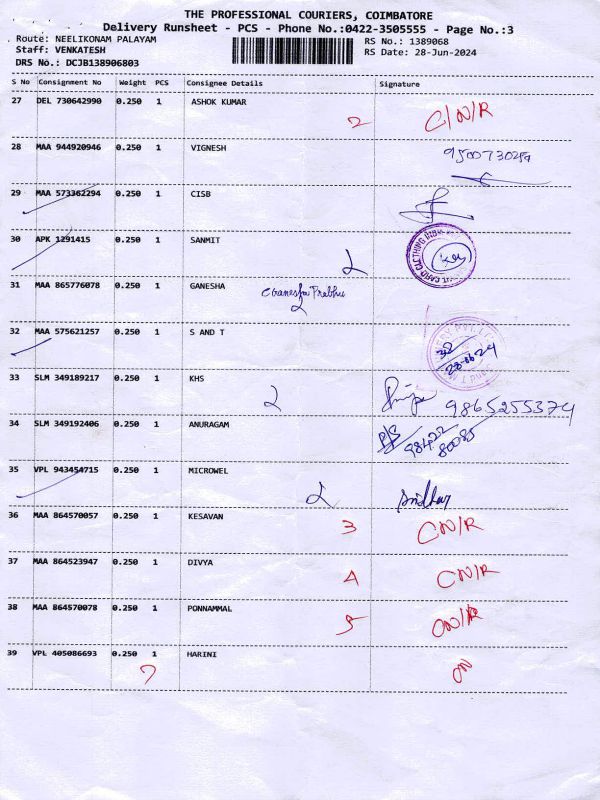 THE PROFESSIONAL COURIERS, COIMBATORE
Delivery Runsheet - PCS - Phone No.:0422-3505555 - Page No.:3
Route: NEELIKONAM PALAYAM
Staff: VENKATESH
DRS No.: DCJB138906803
RS No.: 1389068
RS Date: 28-Jun-2024
S No Consignment No Weight PCS Consignee Details Signature
27 DEL 730642990 0.250 1 ASHOK KUMAR 2 C/N/R
28 MAA 944920946 0.250 1 VIGNESH
29 MAA 573362294 0.250 1 CISB
30 APK 1291415 0.250 1 SANMIT
31 MAA 865776078 0.250 1 GANESHA Ganesha Prabhu
32 MAA 575621257 0.250 1 S AND T 28-06-24
33 SLM 349189217 0.250 1 KHS 9865255374
34 SLM 349192406 0.250 1 ANURAGAM 98422
80085
35 VPL 943454715 0.250 1 MICROWEL Sridhar
36 MAA 864570057 0.250 1 KESAVAN 3 CN/R
37 MAA 864523947 0.250 1 DIVYA 4 CN/R
38 MAA 864570078 0.250 1 PONNAMMAL 5 CN/R
39 VPL 405086693 0.250 1 HARINI
7 CN